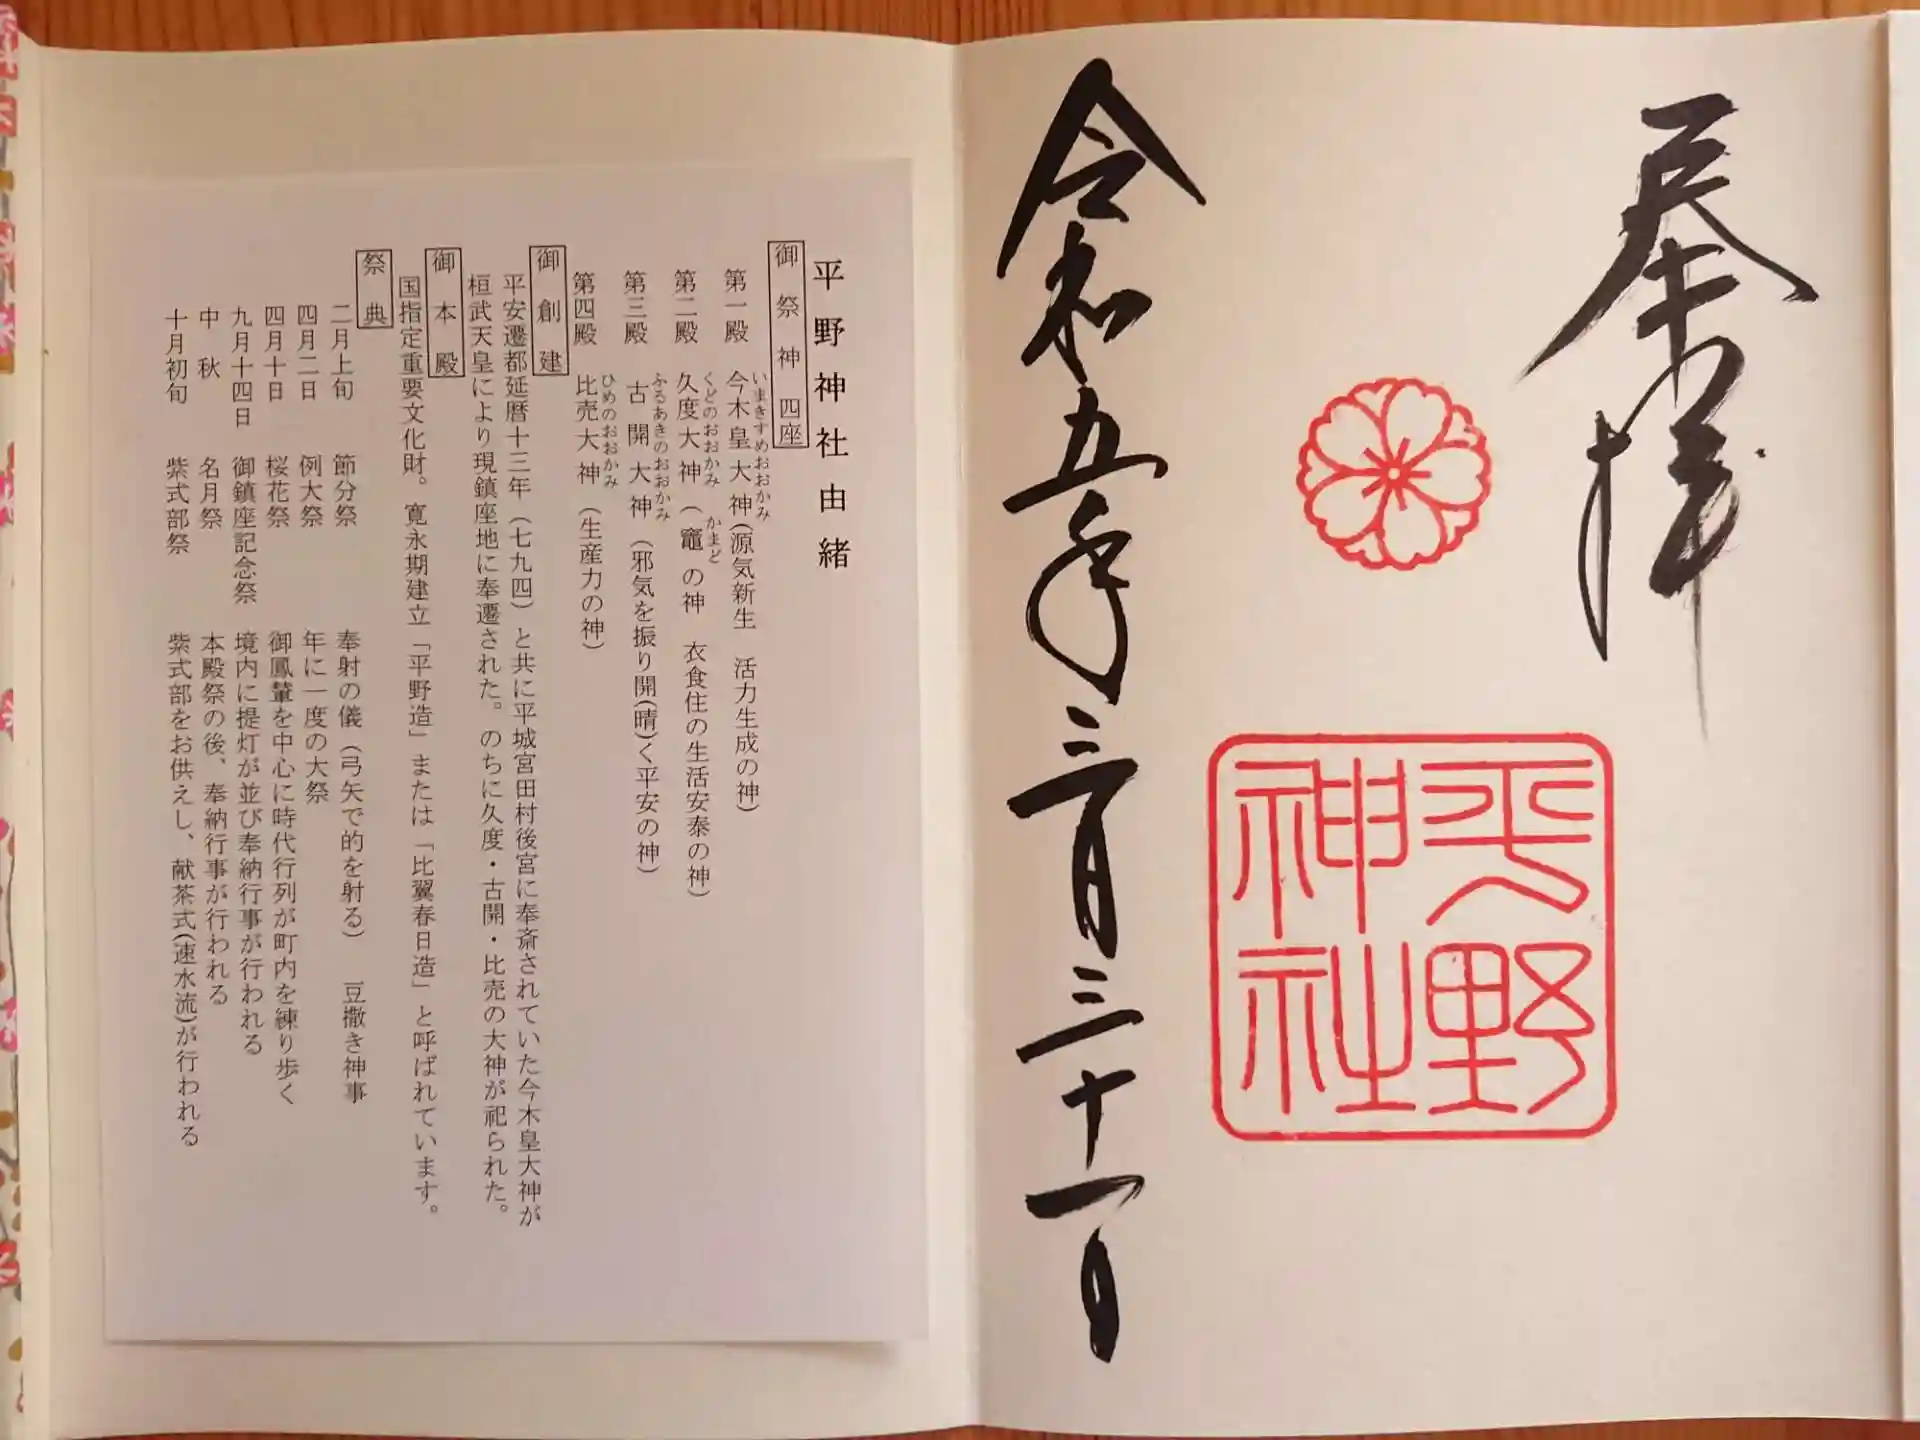 奉拝
平野
神社
令和五年三月三十一日
平野神社由緒
御祭神四座
第一殿 今木皇大神(源気新生 活力生成の神)
いまきすめおおかみ
第二殿 久度大神(竈の神 衣食住の生活安泰の神)
くどのおおかみ かまど
第三殿 古開大神(邪気を振り開(晴)く平安の神)
ふるあきのおおかみ
第四殿 比売大神(生産力の神)
ひめのおおかみ
御創建
平安遷都延暦十三年(七九四)と共に平城宮田村後宮に奉斎されていた今木皇大神が
桓武天皇により現鎮座地に奉遷された。のちに久度・古開・比売の大神が祀られた。
御本殿
国指定重要文化財。寛永期建立「平野造」または「比翼春日造」と呼ばれています。
祭典
二月上旬 節分祭 奉射の儀(弓矢で的を射る) 豆撒き神事
四月二日 例大祭 年に一度の大祭
四月十日 桜花祭 御鳳輦を中心に時代行列が町内を練り歩く
九月十四日 御鎮座記念祭 境内に提灯が並び奉納行事が行われる
中秋 名月祭 本殿祭の後、奉納行事が行われる
十月初旬 紫式部祭 紫式部をお供えし、献茶式(速水流)が行われる